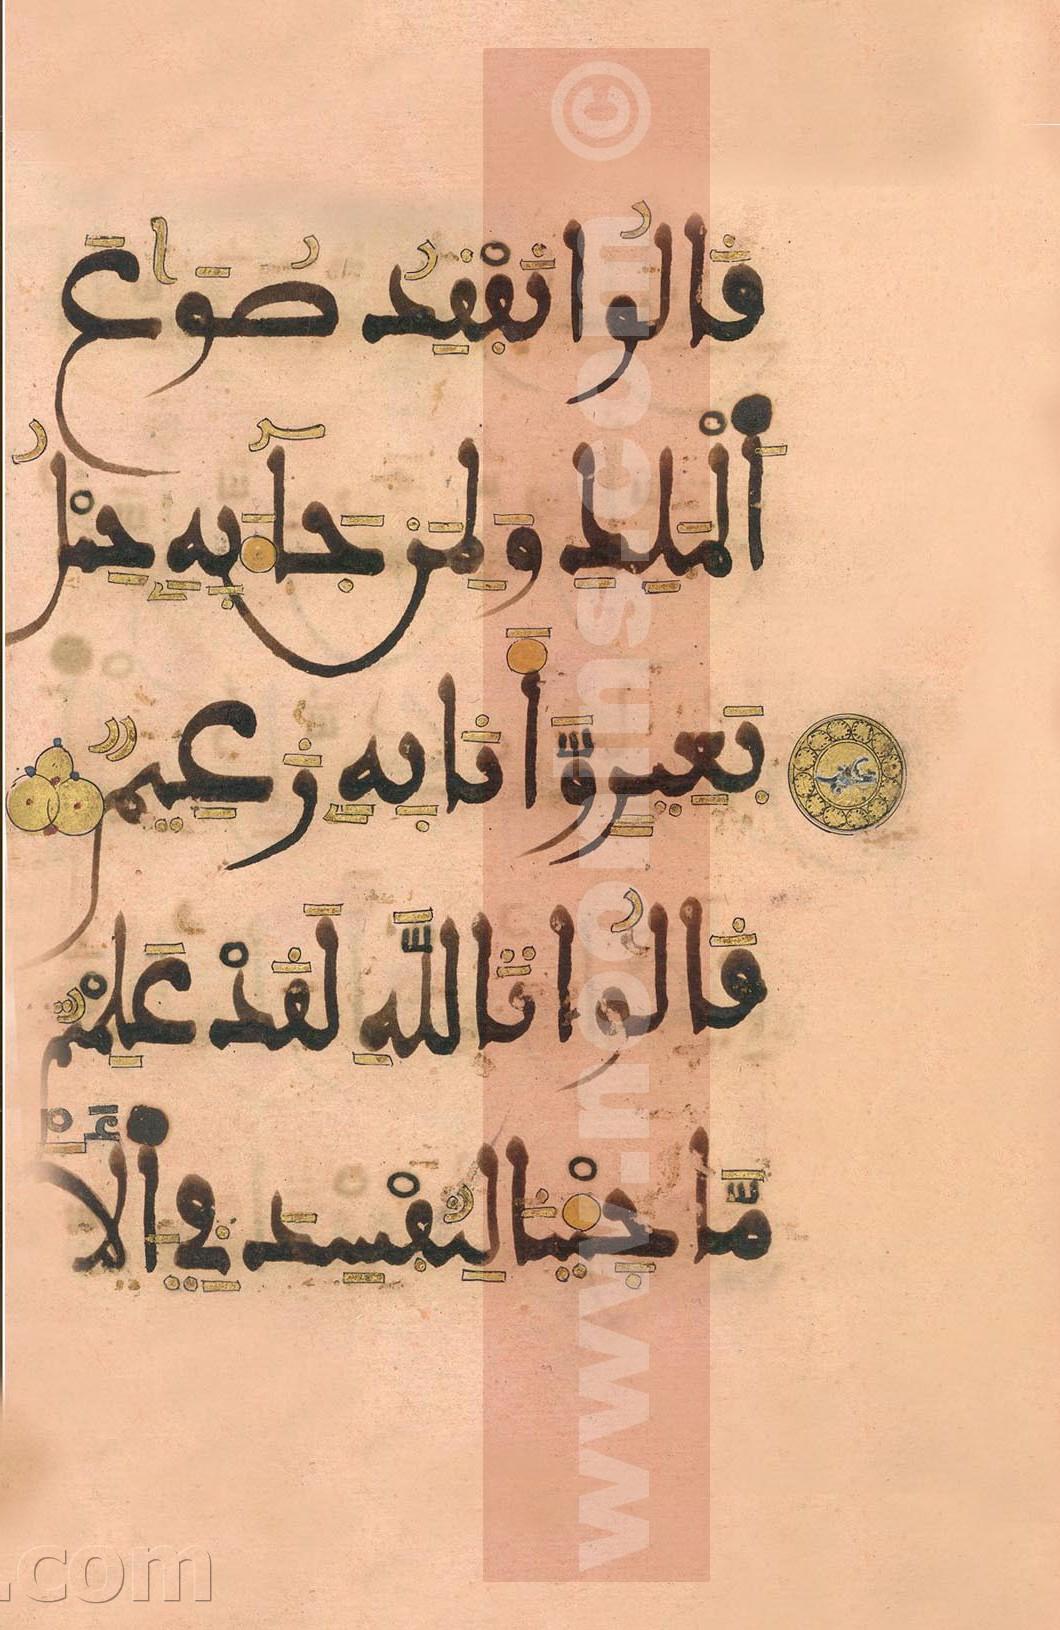 قَالُواْ نَفْقِدُ صُوَاعَ
اَ۬لْمَلِكِ وَلِمَن جَآءَ بِهِۦ حِمْلُ
بَعِيرٍ وَّأَنَا بِهِۦ زَعِيمٌ
قَالُواْ تَاللَّهِ لَقَدْ عَلِمْتُم
مَّا جِئْنَا لِنُفْسِدَ فِي اِ۬لَا
www.noorins.com ©
.com